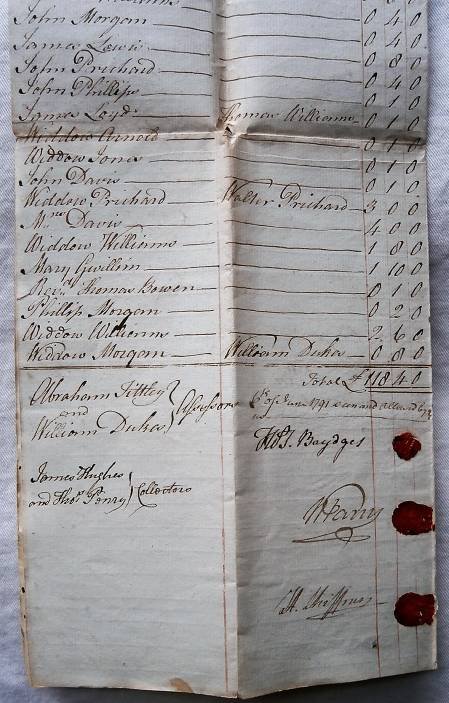 John Morgan 0 4 0
James Lewis
John Prichard 0 8 0
John Phillips 0 4 0
James Loyd Thomas Williams 0 1 0
Widdow Arnold 0 1 0
Widdow Jones 0 1 0
John Davis 0 1 0
Widdow Prichard Walter Prichard 3 0 0
Mrs Davis 4 0 0
Widdow Williams 1 8 0
Mary Gwillim 1 10 0
Revd. Thomas Bowen 0 1 0
Phillip Morgan 0 2 0
Widdow Williams 2 6 0
Widdow Morgan William Dukes 0 8 0
Total £ 118 4 0
Abraham Tittley
and
William Dukes
Assessors
of June 1791 seen and allowed by us
James Hughes
and Thos. Penry
Collectors